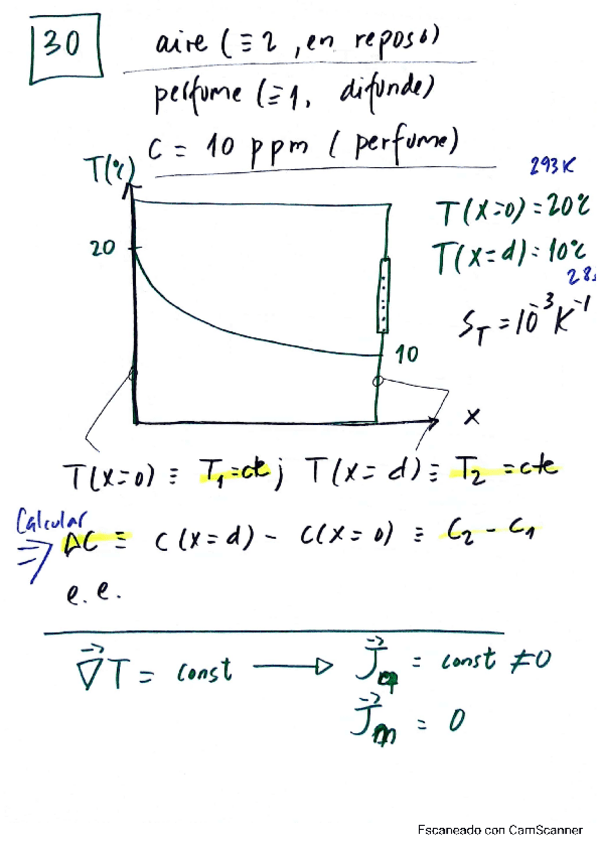 30
aire (≡2, en reposo)
perfume (≡1, difunde)
C = 10 ppm (perfume)
T(℃)
293K
T(x=0) = 20℃
20
T(x=d) = 10℃
28
S_T = 10^-3 K^-1
10
x
T(x=0) ≡ T₁=cte; T(x=d) ≡ T₂ =cte
Calcular
⇒ ΔC ≡ C(x=d) - C(x=0) ≡ C₂ - C₁
e.e.
∇T = const → J_q = const ≠0
J_m = 0
Escaneado con CamScanner